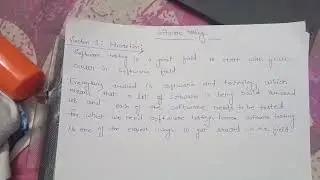 Software testing
Section 1: Introduction
Software testing is a great field to start with your
career in software field
Everything around is software and technology which
means that a lot of software is being build around
us and each of the software needs to be tested
for which we need software testing, hence software testing
is one of the easiest ways to get started in the field.